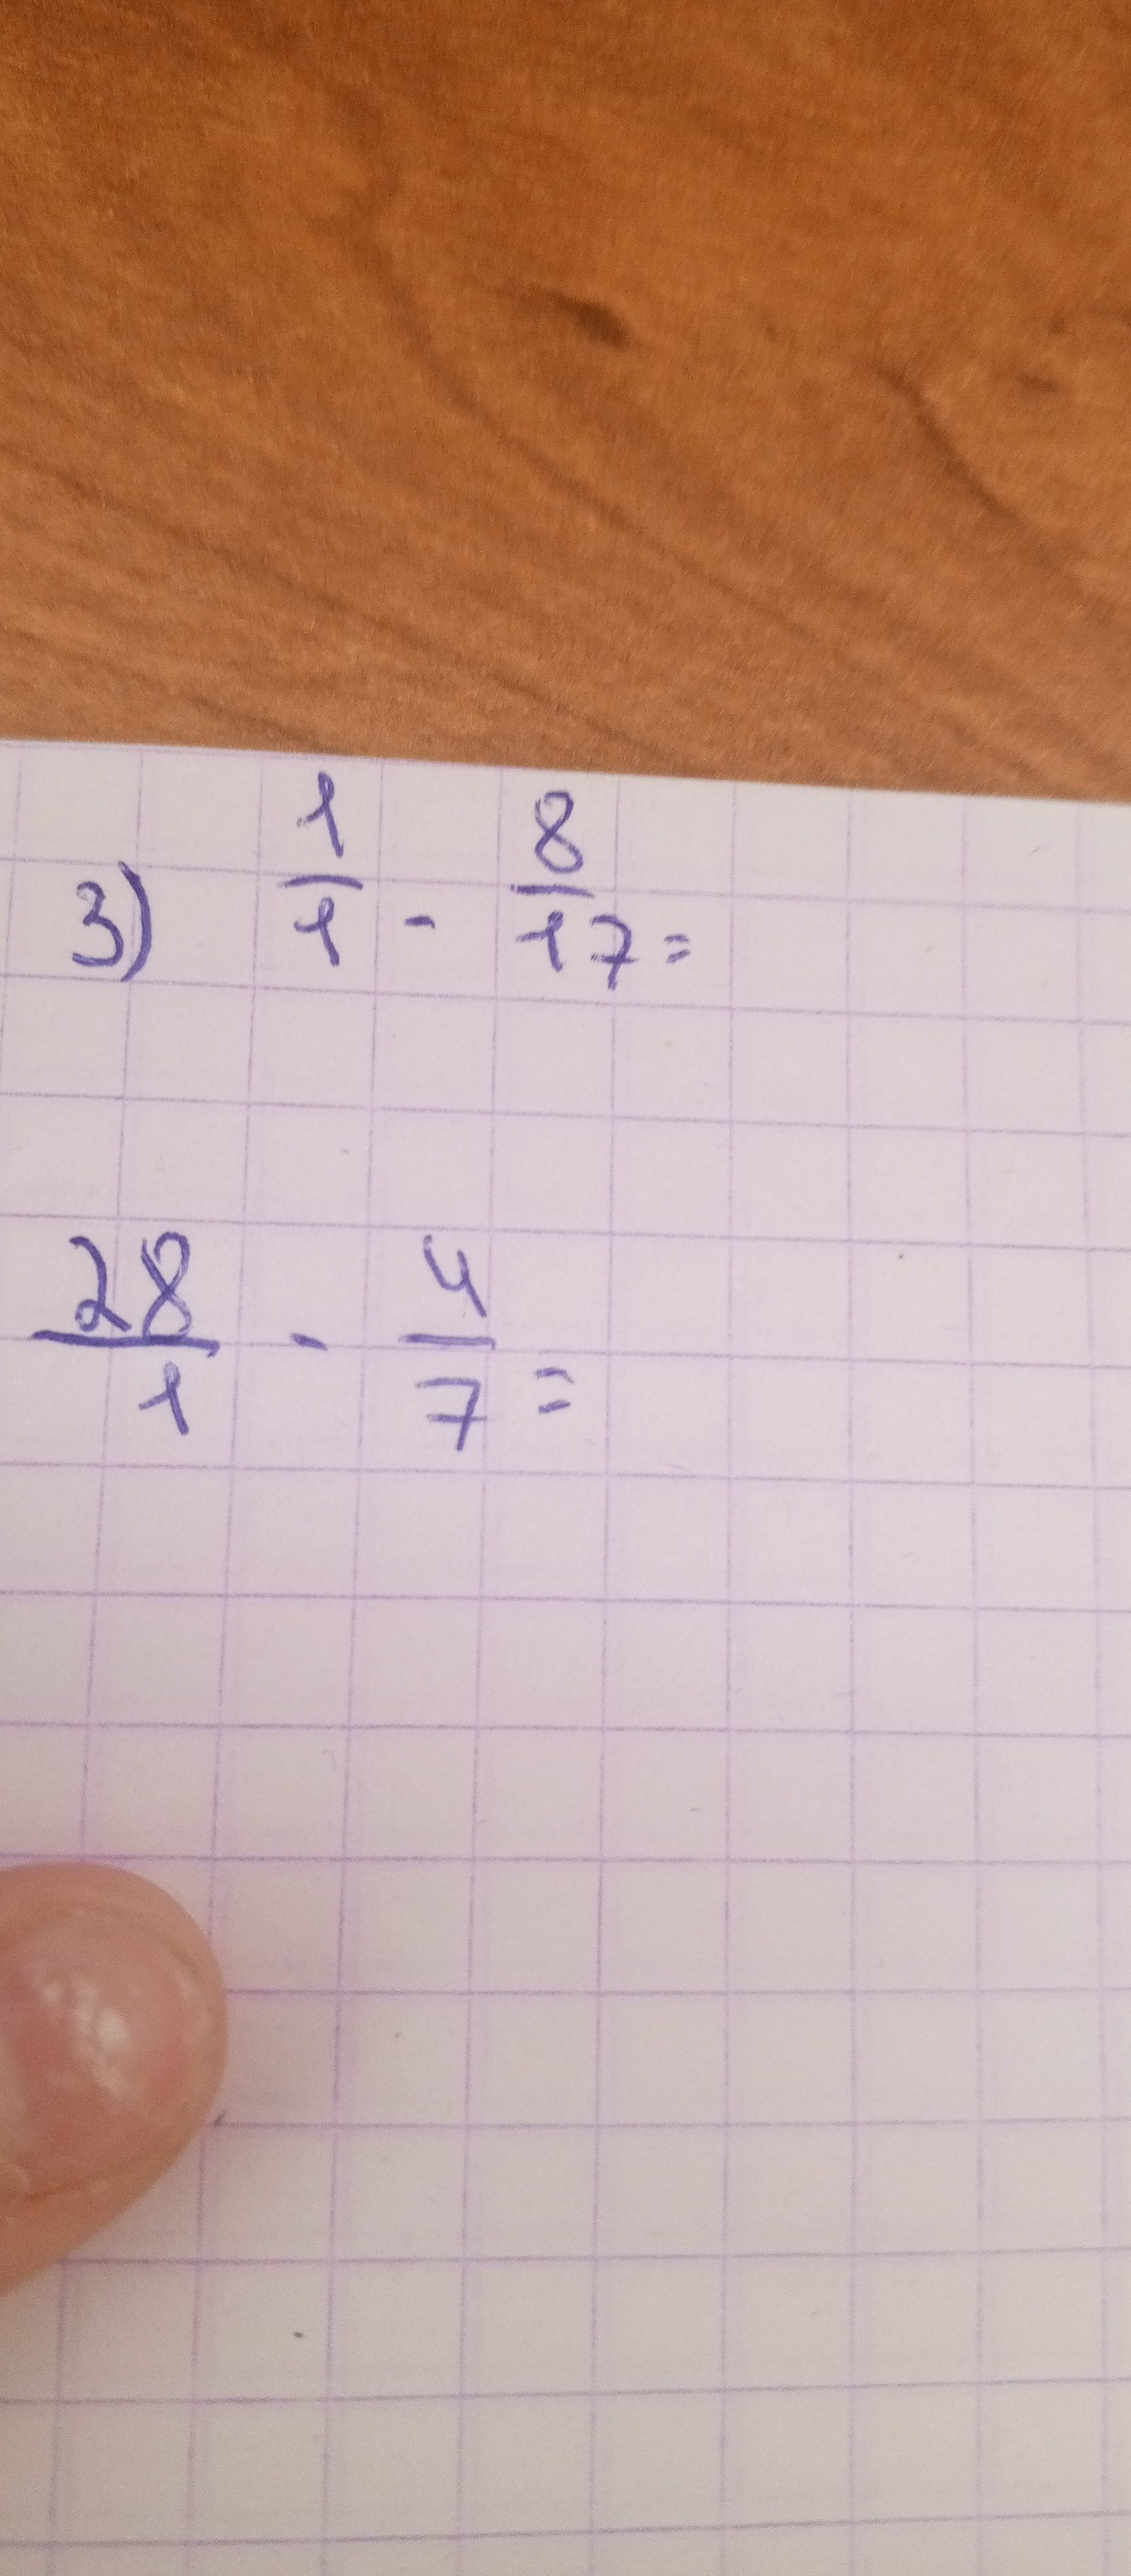 3) 1/1 - 8/17 =
28/1 - 4/7 =